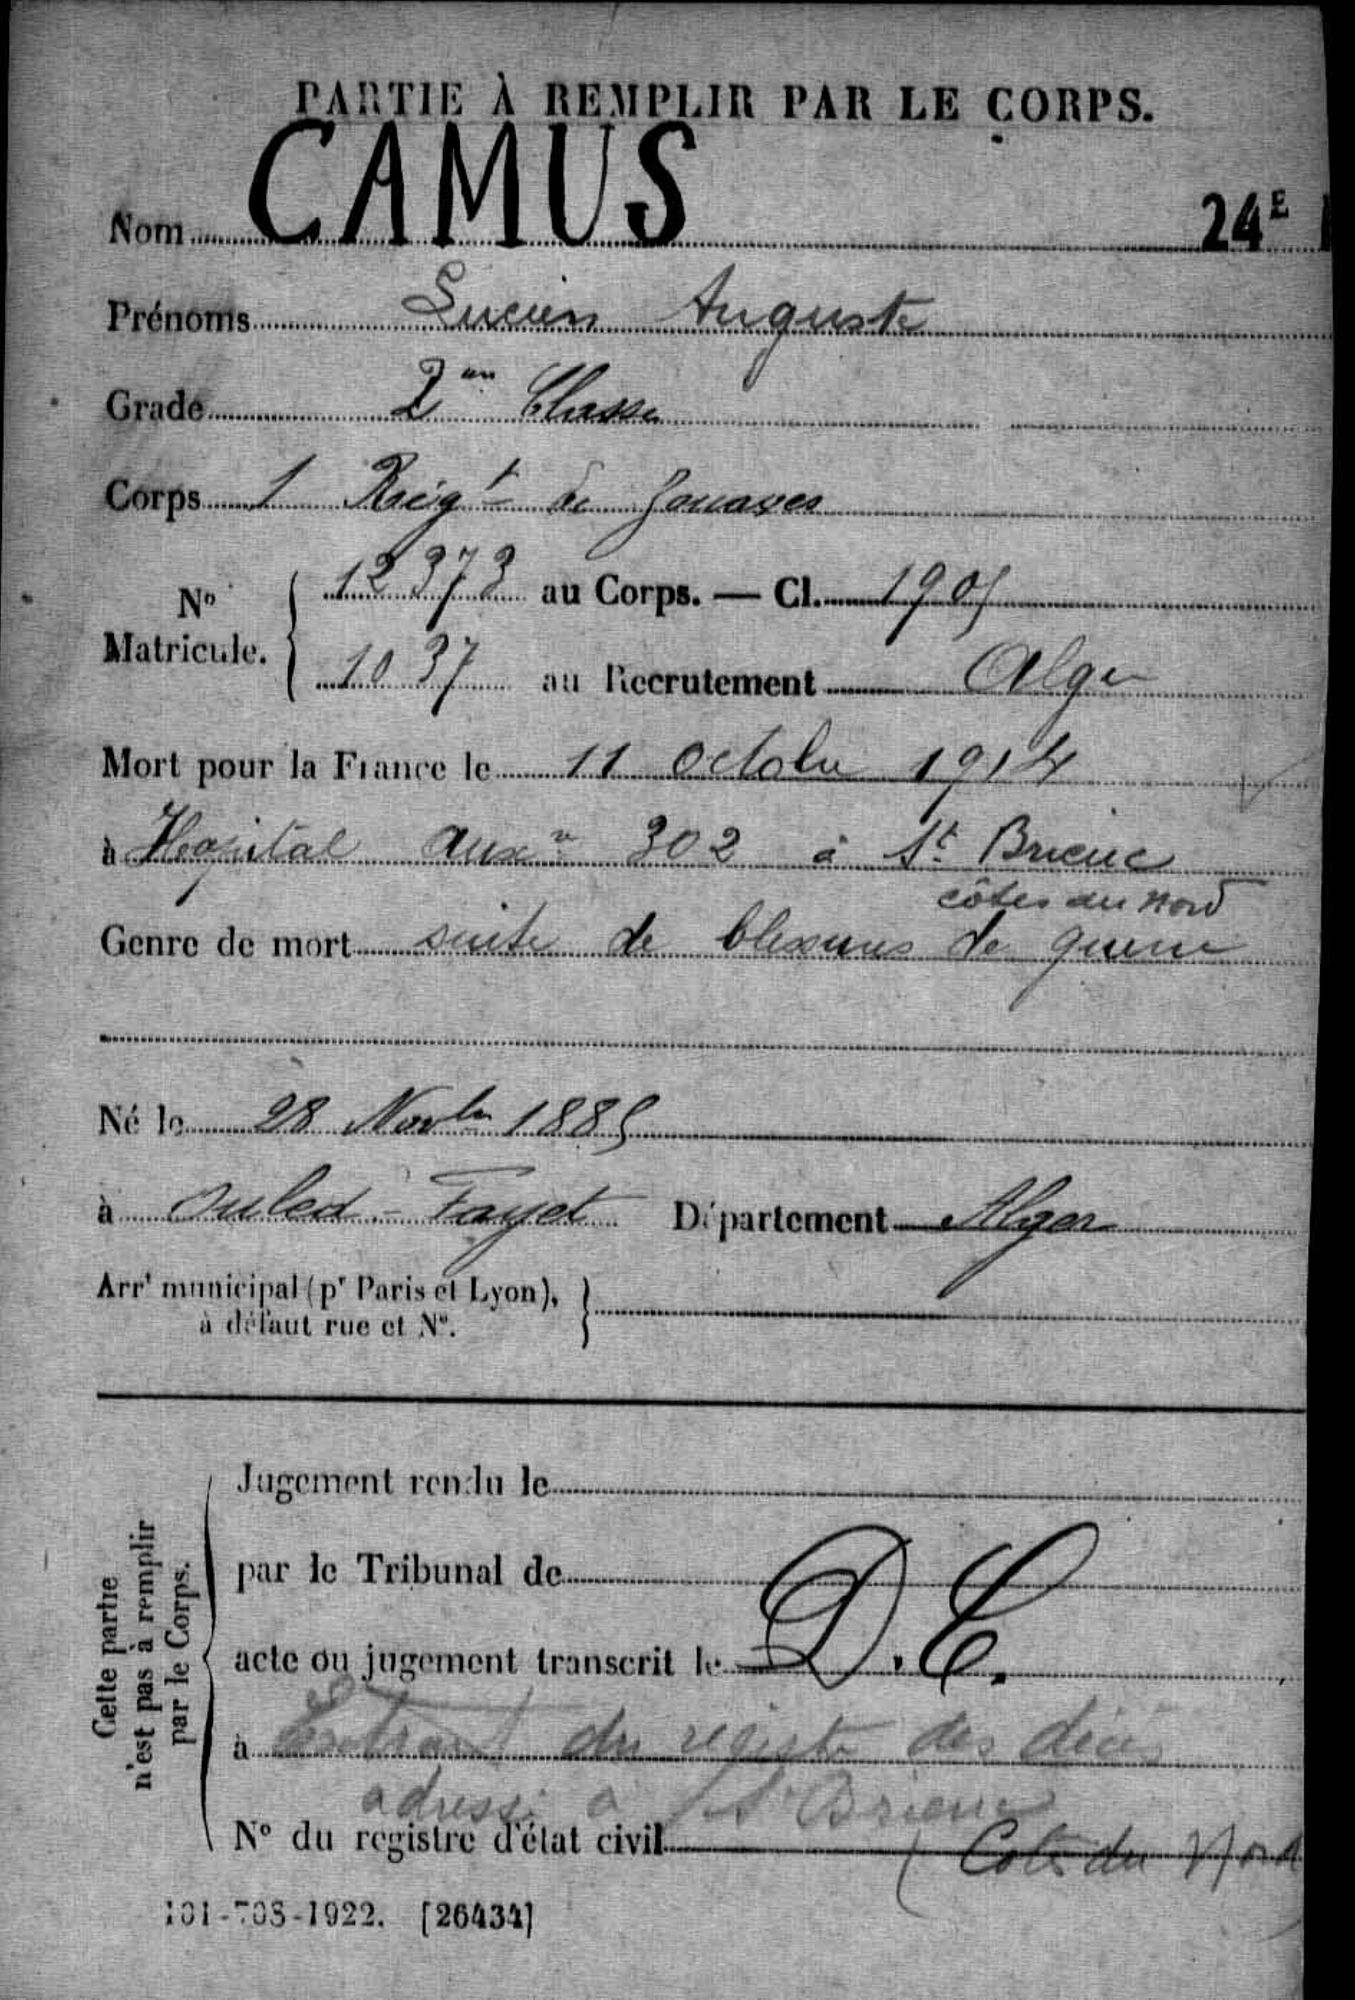 PARTIE À REMPLIR PAR LE CORPS.
Nom CAMUS
24E
Prénoms Lucien Auguste
Grade 2me Classe
Corps 1 Régt de Zouaves
No Matricule. 12373 au Corps. — Cl. 1905
1037 au Recrutement Alger
Mort pour la France le 11 octobre 1914
à Hôpital auxre 302 à St Brieuc
côtes du Nord
Genre de mort suite de blessures de guerre
Né le 28 Novbre 1885
à Ouled-Fayet Département Alger
Arrt municipal (pr Paris et Lyon),
à défaut rue et No.
Cette partie
n'est pas à remplir
par le Corps.
Jugement rendu le
par le Tribunal de
acte ou jugement transcrit le D.C.
à Extrait du registre des décès
adressé à St Brieuc
No du registre d'état civil (Cotes du Nord
101-708-1922. [26434]